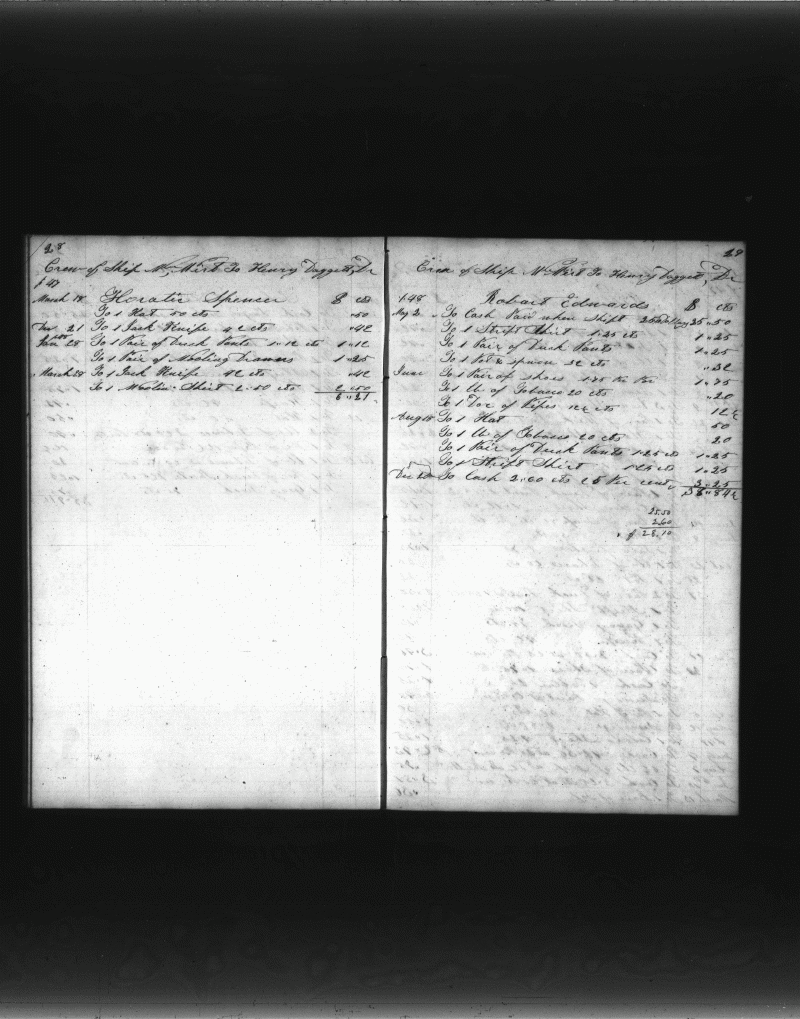 28
Crew of Ship Wm Wirt To Henry Daggett, Dr
March 18 Horatio Spencer $ cts
To 1 Hat 50 cts "50
21 To 1 Jack Knife 42 cts "42
28 To 1 Pair of Duck Pants 1.12 cts 1"12
To 1 Pair of Drawers 1"25
March 28 To 1 Jack Knife 42 cts "42
To 1 Shirt 2.50 cts 2"50
6"21
29
Crew of Ship Wm Wirt To Henry Daggett, Dr
Robart Edwards $ cts
May 2 To Cash Paid when Shipt 25"50
To 1 Stript Shirt 1.25 cts 1"25
To 1 Pair of Duck Pants 1"25
To 1 Pot & spoon 32 cts "32
June To 1 Pair of shoes 1.75 1"75
To 1 lb of Tobacco 20 cts "20
To 1 Doz of Pipes 12½ cts 12½
Aug 18 To 1 Hat 50
To 1 lb of Tobacco 20 cts 20
To 1 Pair of Duck Pants 1.25 cts 1"25
To 1 Stript Shirt 1.25 cts 1"25
To Cash 2.60 cts 25 Per cent 3"25
25.50
2.60
$ 28.10